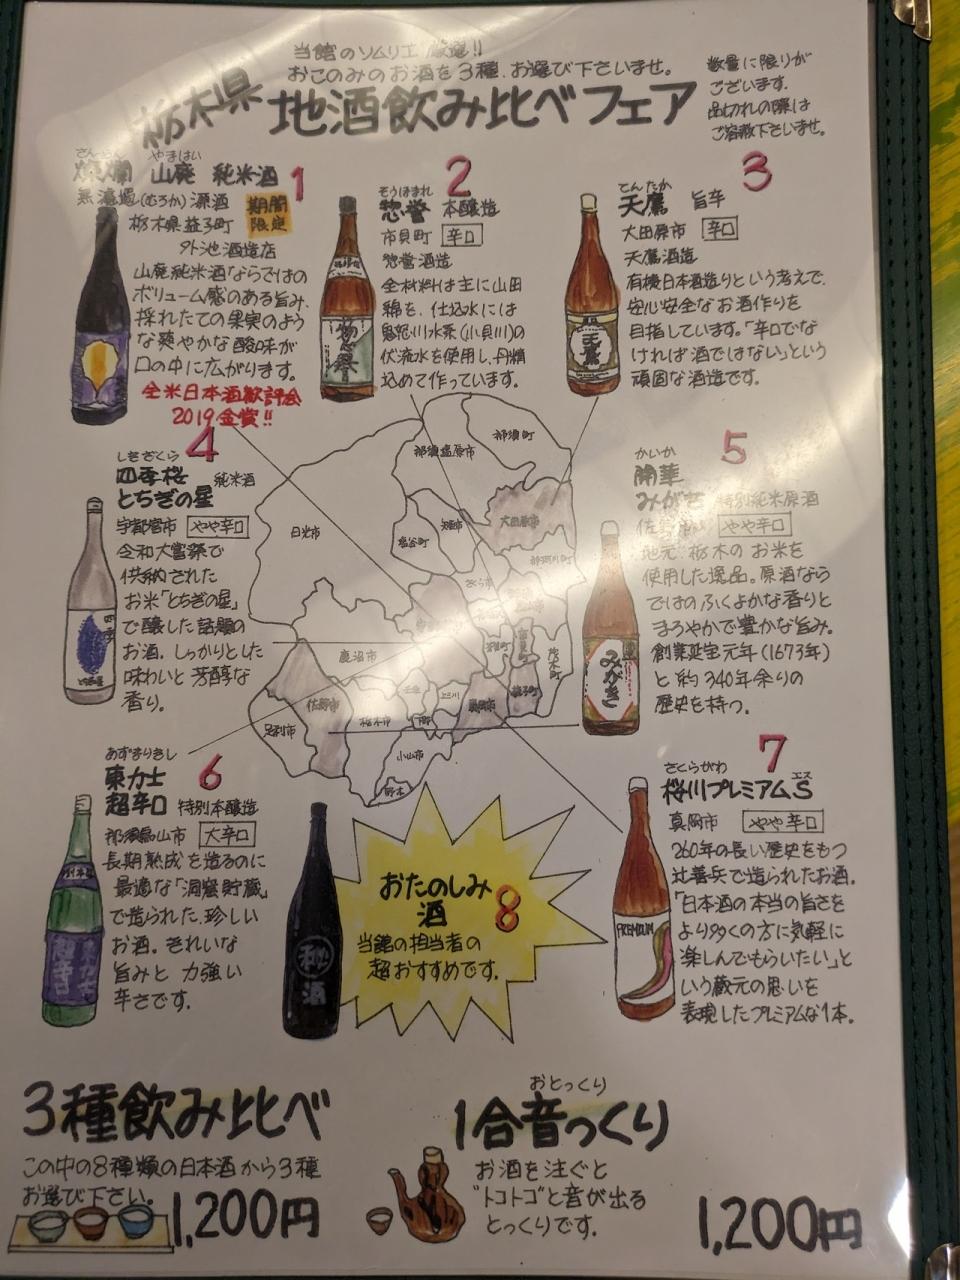 当館のソムリエ厳選!!
おこのみのお酒を3種、お選び下さいませ。
栃木県 地酒飲み比べフェア
数量に限りが
ございます。
品切れの際は
ご容赦下さいませ。
さんらん やまはい
燦爛 山廃 純米酒 1
無濾過(むろか)原酒
期間
限定
栃木県益子町
外池酒造店
山廃純米酒ならではの
ボリューム感のある旨み、
採れたての果実のよう
な爽やかな酸味が
口の中に広がります。
全米日本酒歓評会
2019金賞!!
2
そうほまれ
惣誉 本醸造
市貝町 辛口
惣誉酒造
全材料は主に山田
錦を、仕込水には
鬼怒川水系(小貝川)の
伏流水を使用し、丹精
込めて作っています。
3
てんたか
天鷹 旨辛
大田原市 辛口
天鷹酒造
有機日本酒造りという考えで、
安心安全なお酒作りを
目指しています。「辛口でな
ければ酒ではない」という
頑固な酒造です。
4
しきざくら
四季桜 純米酒
とちぎの星
宇都宮市 やや辛口
令和大嘗祭で
供納された
お米「とちぎの星」
で醸した話題の
お酒。しっかりとした
味わいと芳醇な
香り。
5
かいか
開華
みがき 特別純米原酒
佐野市 やや辛口
地元 栃木のお米を
使用した逸品。原酒なら
ではのふくよかな香りと
まろやかで豊かな旨み。
創業延宝元年(1673年)
と約340年余りの
歴史を持つ。
那須町
那須塩原市
日光市
矢板市
大田原市
塩谷町
那珂川町
さくら市
鹿沼市
茂木町
佐野市
栃木市
上三川
真岡市
益子町
足利市
小山市
野木
みがき
あずまりきし
東力士 6
超辛口 特別本醸造
那須烏山市 大辛口
長期熟成を造るのに
最適な「洞窟貯蔵」
で造られた、珍しい
お酒。きれいな
旨みと力強い
辛さです。
秘
酒
おたのしみ
酒 8
当館の担当者の
超おすすめです。
7
さくらがわ エス
桜川プレミアムS
真岡市 やや辛口
260年の長い歴史をもつ
辻善兵で造られたお酒。
「日本酒の本当の旨さを
より多くの方に気軽に
楽しんでもらいたい」と
いう蔵元の思いを
表現したプレミアムな1本。
PREMIUM
3種飲み比べ
この中の8種類の日本酒から3種
お選び下さい。
1,200円
おとっくり
1合音っくり
お酒を注ぐと
"トコトコ"と音が出る
とっくりです。
1,200円